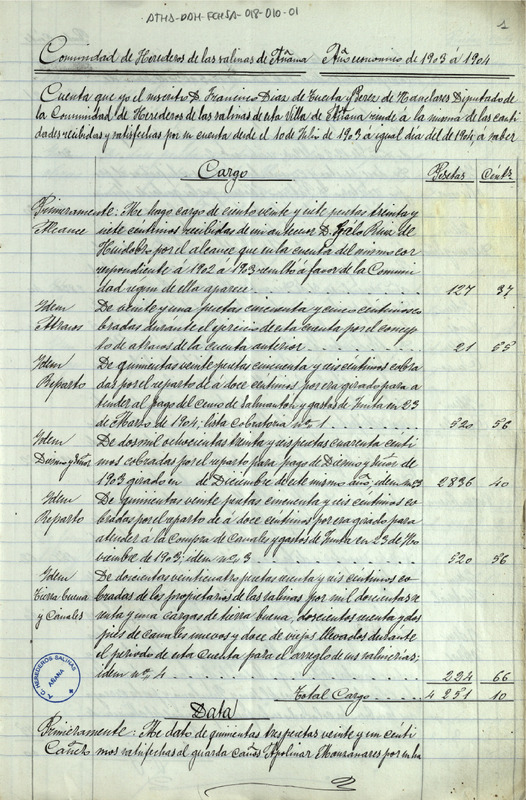 ATHA-DAH-FCHSA-018-010-01
1
Comunidad de Herederos de las salinas de Añana Año economico de 1903 á 1904
Cuenta que yo el inscrito D. Francisco Diaz de Tuesta y Perez de Nanclares Diputado de
la Comunidad de Herederos de las salinas de esta Villa de Añana rinde á la misma de las canti
dades recibidas y satisfechas por su cuenta desde el 1o de Julio de 1903 á igual dia del de 1904, á saber
Cargo Pesetas Cénts
Primeramente: Me hago cargo de ciento veinte y siete pesetas treinta y
Alcance siete centimos recibidas de mi antecesor D. Ruiz de
Huidobro por el alcance que en la cuenta del mismo cor
respondiente á 1902 á 1903 resultó á favor de la Comuni
dad segun de ella aparece 127 37
Idem De veinte y una pesetas cincuenta y cinco centimos co
Atrasos bradas durante el ejercicio de esta cuenta por el concep
to de atrasos de la cuenta anterior 21 55
Idem De quinientas veinte pesetas cincuenta y seis céntimos cobra
Reparto das por el reparto de á doce céntimos por era girado para a
tender al pago del censo de Salmantón y gastos de Junta en 23
de Marzo de 1904; lista cobratoria no. 1 520 56
Idem De dos mil ochocientas treinta y seis pesetas cuarenta cénti
Diezmo y mos cobradas por el reparto para pago de Diezmo y de
1903 girado en de Diciembre de este mismo año, idem no. 2 2836 40
Idem De quinientas veinte pesetas cincuenta y seis céntimos co
Reparto bradas por el reparto de á doce céntimos por era girado para
atender á la compra de canales y gastos de Junta en 23 de No
viembre de 1903; idem no. 3 520 56
Idem De doscientas veinticuatro pesetas sesenta y seis céntimos co
tierra buena bradas de los propietarios de las salinas por mil doscientas se
y Canales senta y una cargas de tierra buena, doscientos sesenta y dos
piés de canales nuevos y doce de viejos llevados durante
el periodo de esta cuenta para el arreglo de sus salinerias;
idem no. 4 224 66
Total Cargo 4 251 10
Data
Primeramente: Me dato de quinientas tres pesetas veinte y un cénti
Cañero mos satisfechas al guarda caños Apolinar Manzanares por su ha
A. C. HEREDEROS SALINAS
AÑANA